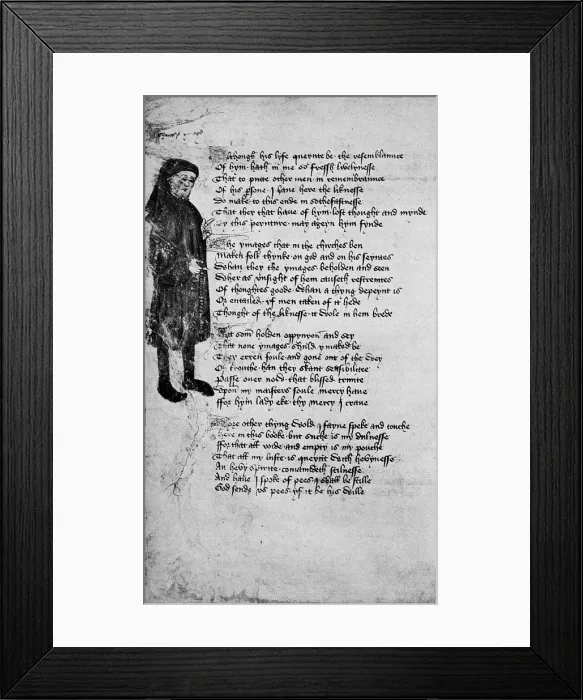 Althogh his lyfe queynte be the resemblaunce
Of hym hath in me so fressh lyvelynesse
That to putte other men in remembraunce
Of his psone I have here the liknesse
Do make to this ende in sothefastnesse
That they that have of hym lost thought and mynde
By this peynture may ageyn hym fynde
The ymages that in the chirches ben
Maken folk thynke on god and on his seyntes
Whan they the ymages beholden and seen
Wher as unsight of hem causeth restreintes
Of thoughtes goode Whan a thyng depeynt is
Or entailed yf men taken of it hede
Thought of the liknesse it wole in hem brede
Yet som holden oppynyon and sey
That none ymages shuld ymaked be
They erren foule and gone out of the wey
Of trouthe han they skant sensibilitee
Passe over now that blissed trinite
Upon my maisters soule mercy have
ffor hym lady eke thy mercy I crave
More other thyng wold I fayne speke and touche
here in this booke but suche is my dulnesse
ffor that all voide and empty is my pouche
That all my luste is queynt with hevynesse
An hevy spirite comaundeth stilnesse
And have I spoke of pees I shall be stille
God sende us pees yf it be his wille